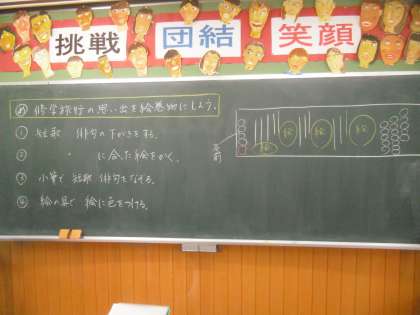 挑戦 団結 笑顔
め 修学旅行の思い出を絵巻物にしよう。
① 短歌 俳句の下がきをする。
② 〃 に合った絵をかく。
③ 小筆で 短歌 俳句をなぞる。
④ 絵の具で 絵に色をつける。
絵 絵 絵 絵
名前